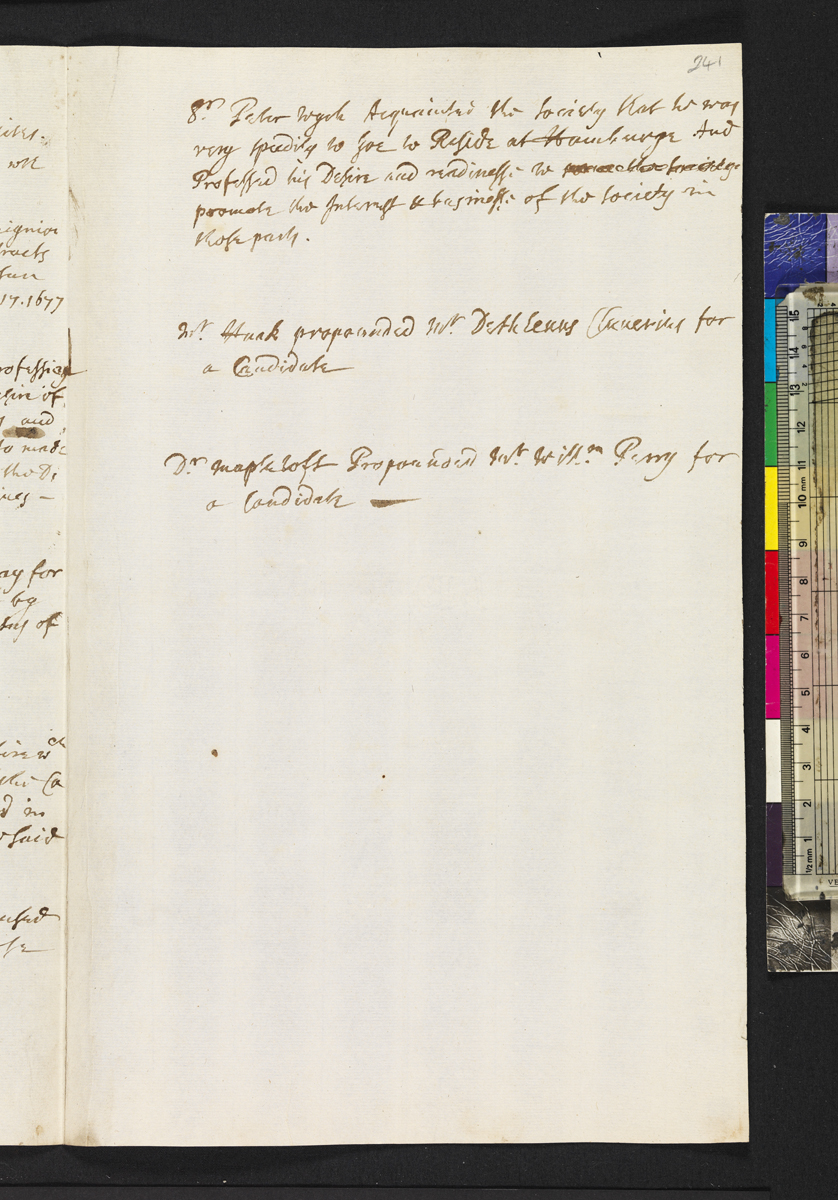 241
Sr. Peter Wych Acquainted the Society that he was
very speedily to goe to Reside at Hamburge And
Professed his Desire and readinesse to
promote the Interest & businesse of the Society in
those parts.
Mr. Haak propounded Mr. Dethlevus Cluverius for
a Candidate
Dr Mapletoft Propounded Mr. Willm. Perry for
a Candidate
17.1677
of
and
to made
the Di
ay for
by
of
the Ca
d in
said